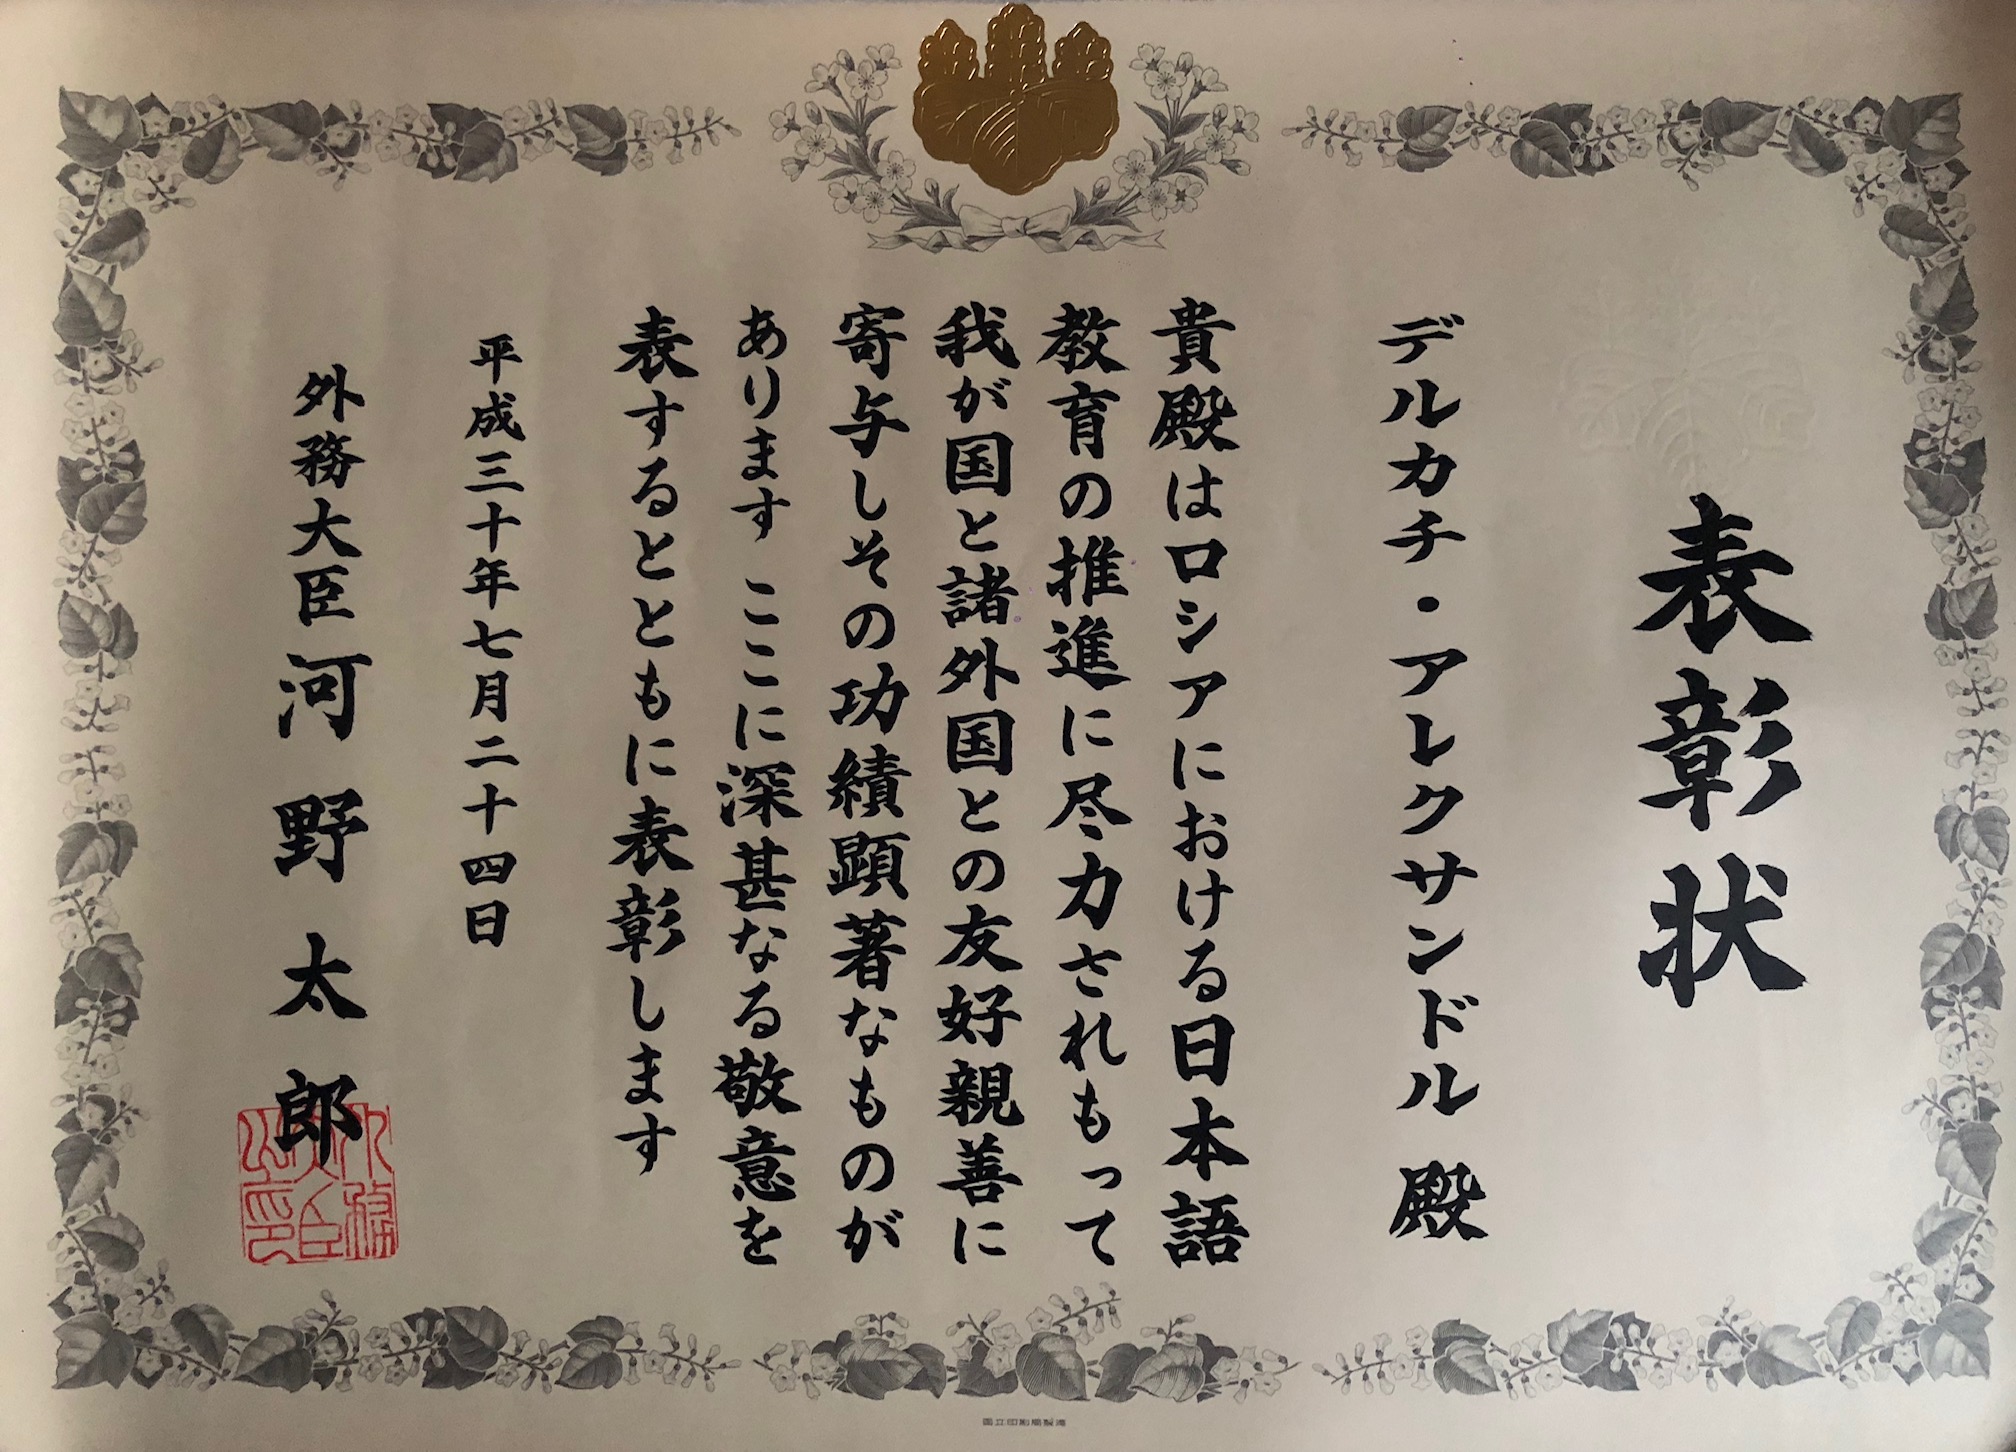 表彰状
デルカチ・アレクサンドル 殿
貴殿はロシアにおける日本語
教育の推進に尽力されもって
我が国と諸外国との友好親善に
寄与しその功績顕著なものが
あります ここに深甚なる敬意を
表するとともに表彰します
平成三十年七月二十四日
外務大臣 河野太郎
外務大臣之印
国立印刷局製造